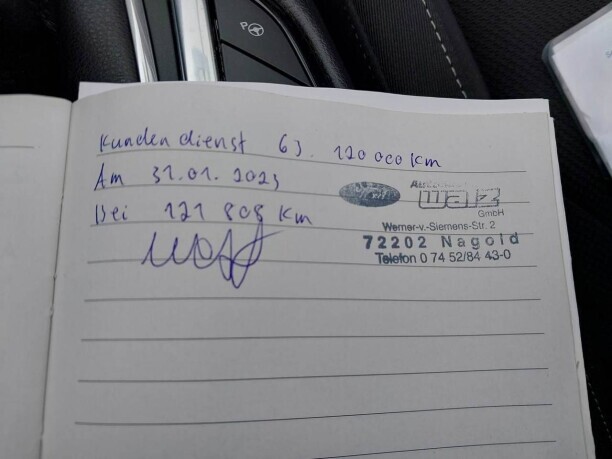 Kundendienst 6J. 120 000 Km
Am 31.01.2023
Bei 121 808 Km
walz
GmbH
Werner-v.-Siemens-Str. 2
72202 Nagold
Telefon 0 74 52/84 43-0
P